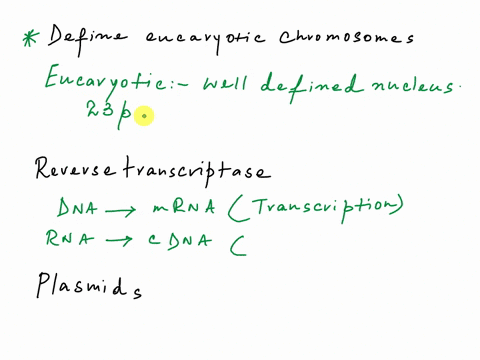 * Define eucaryotic chromosomes
Eucaryotic:- well defined nucleus.
23 p
Reverse transcriptase
DNA → mRNA (Transcription)
RNA → cDNA (
Plasmids